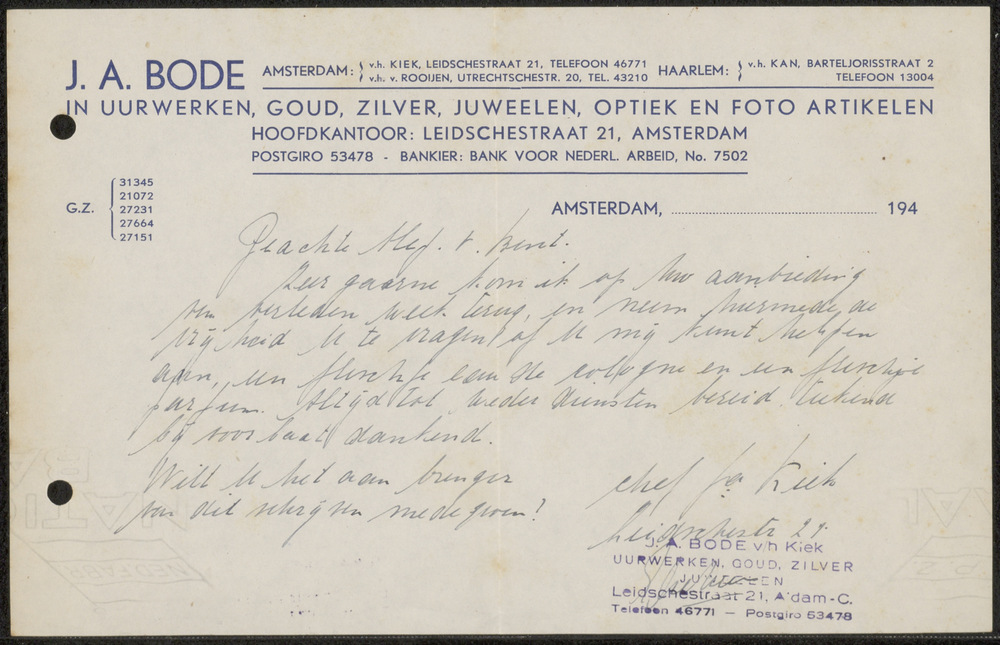 J. A. BODE
AMSTERDAM: v.h. KIEK, LEIDSCHESTRAAT 21, TELEFOON 46771
v.h. v. ROOIJEN, UTRECHTSCHESTR. 20, TEL. 43210
HAARLEM: v.h. KAN, BARTELJORISSTRAAT 2
TELEFOON 13004
IN UURWERKEN, GOUD, ZILVER, JUWEELEN, OPTIEK EN FOTO ARTIKELEN
HOOFDKANTOOR: LEIDSCHESTRAAT 21, AMSTERDAM
POSTGIRO 53478 - BANKIER: BANK VOOR NEDERL. ARBEID, No. 7502
G.Z.
31345
21072
27231
27664
27151
AMSTERDAM, 194
Geachte Mej. v.
Zeer gaarne kom ik op Uw aanbieding
van verleden week terug, en neem hiermede de
vrijheid U te vragen of U mij kunt helpen
aan, een fleschje eau de cologne en een fleschje
parfum. Altijd tot weder diensten bereid. teekend
bij voorbaat dankend.
Wilt U het aan brenger
van dit schrijven medegeven?
chef fa Kiek
Leidschestr 21.
J. A. BODE v/h Kiek
UURWERKEN, GOUD, ZILVER
JUWEELEN
Leidschestraat 21, A'dam-C.
Telefoon 46771 — Postgiro 53478